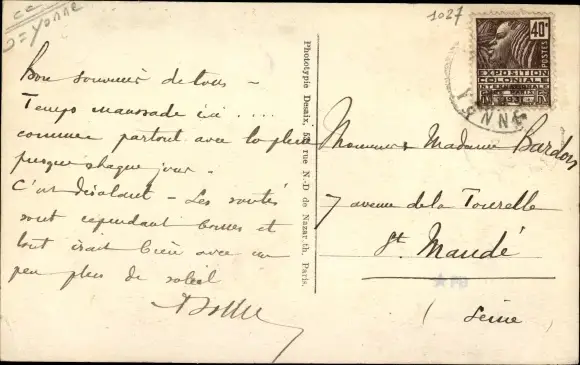 cc
D= Yonne
1027
40c
POSTES
EXPOSITION
COLONIALE
INTERNATIONALE
PARIS
1931
YONNE
Bon souvenir de tous –
Temps maussade ici ....
comme partout avec la pluie
presque chaque jour –
C'est désolant – Les santés
sont cependant bonnes et
tout irait bien avec un
peu plus de soleil
Phototypie Desaix, rue N.-D de Nazareth, Paris.
Monsieur & Madame Bardon
7 avenue de la Tourelle
St. Mandé
(Seine